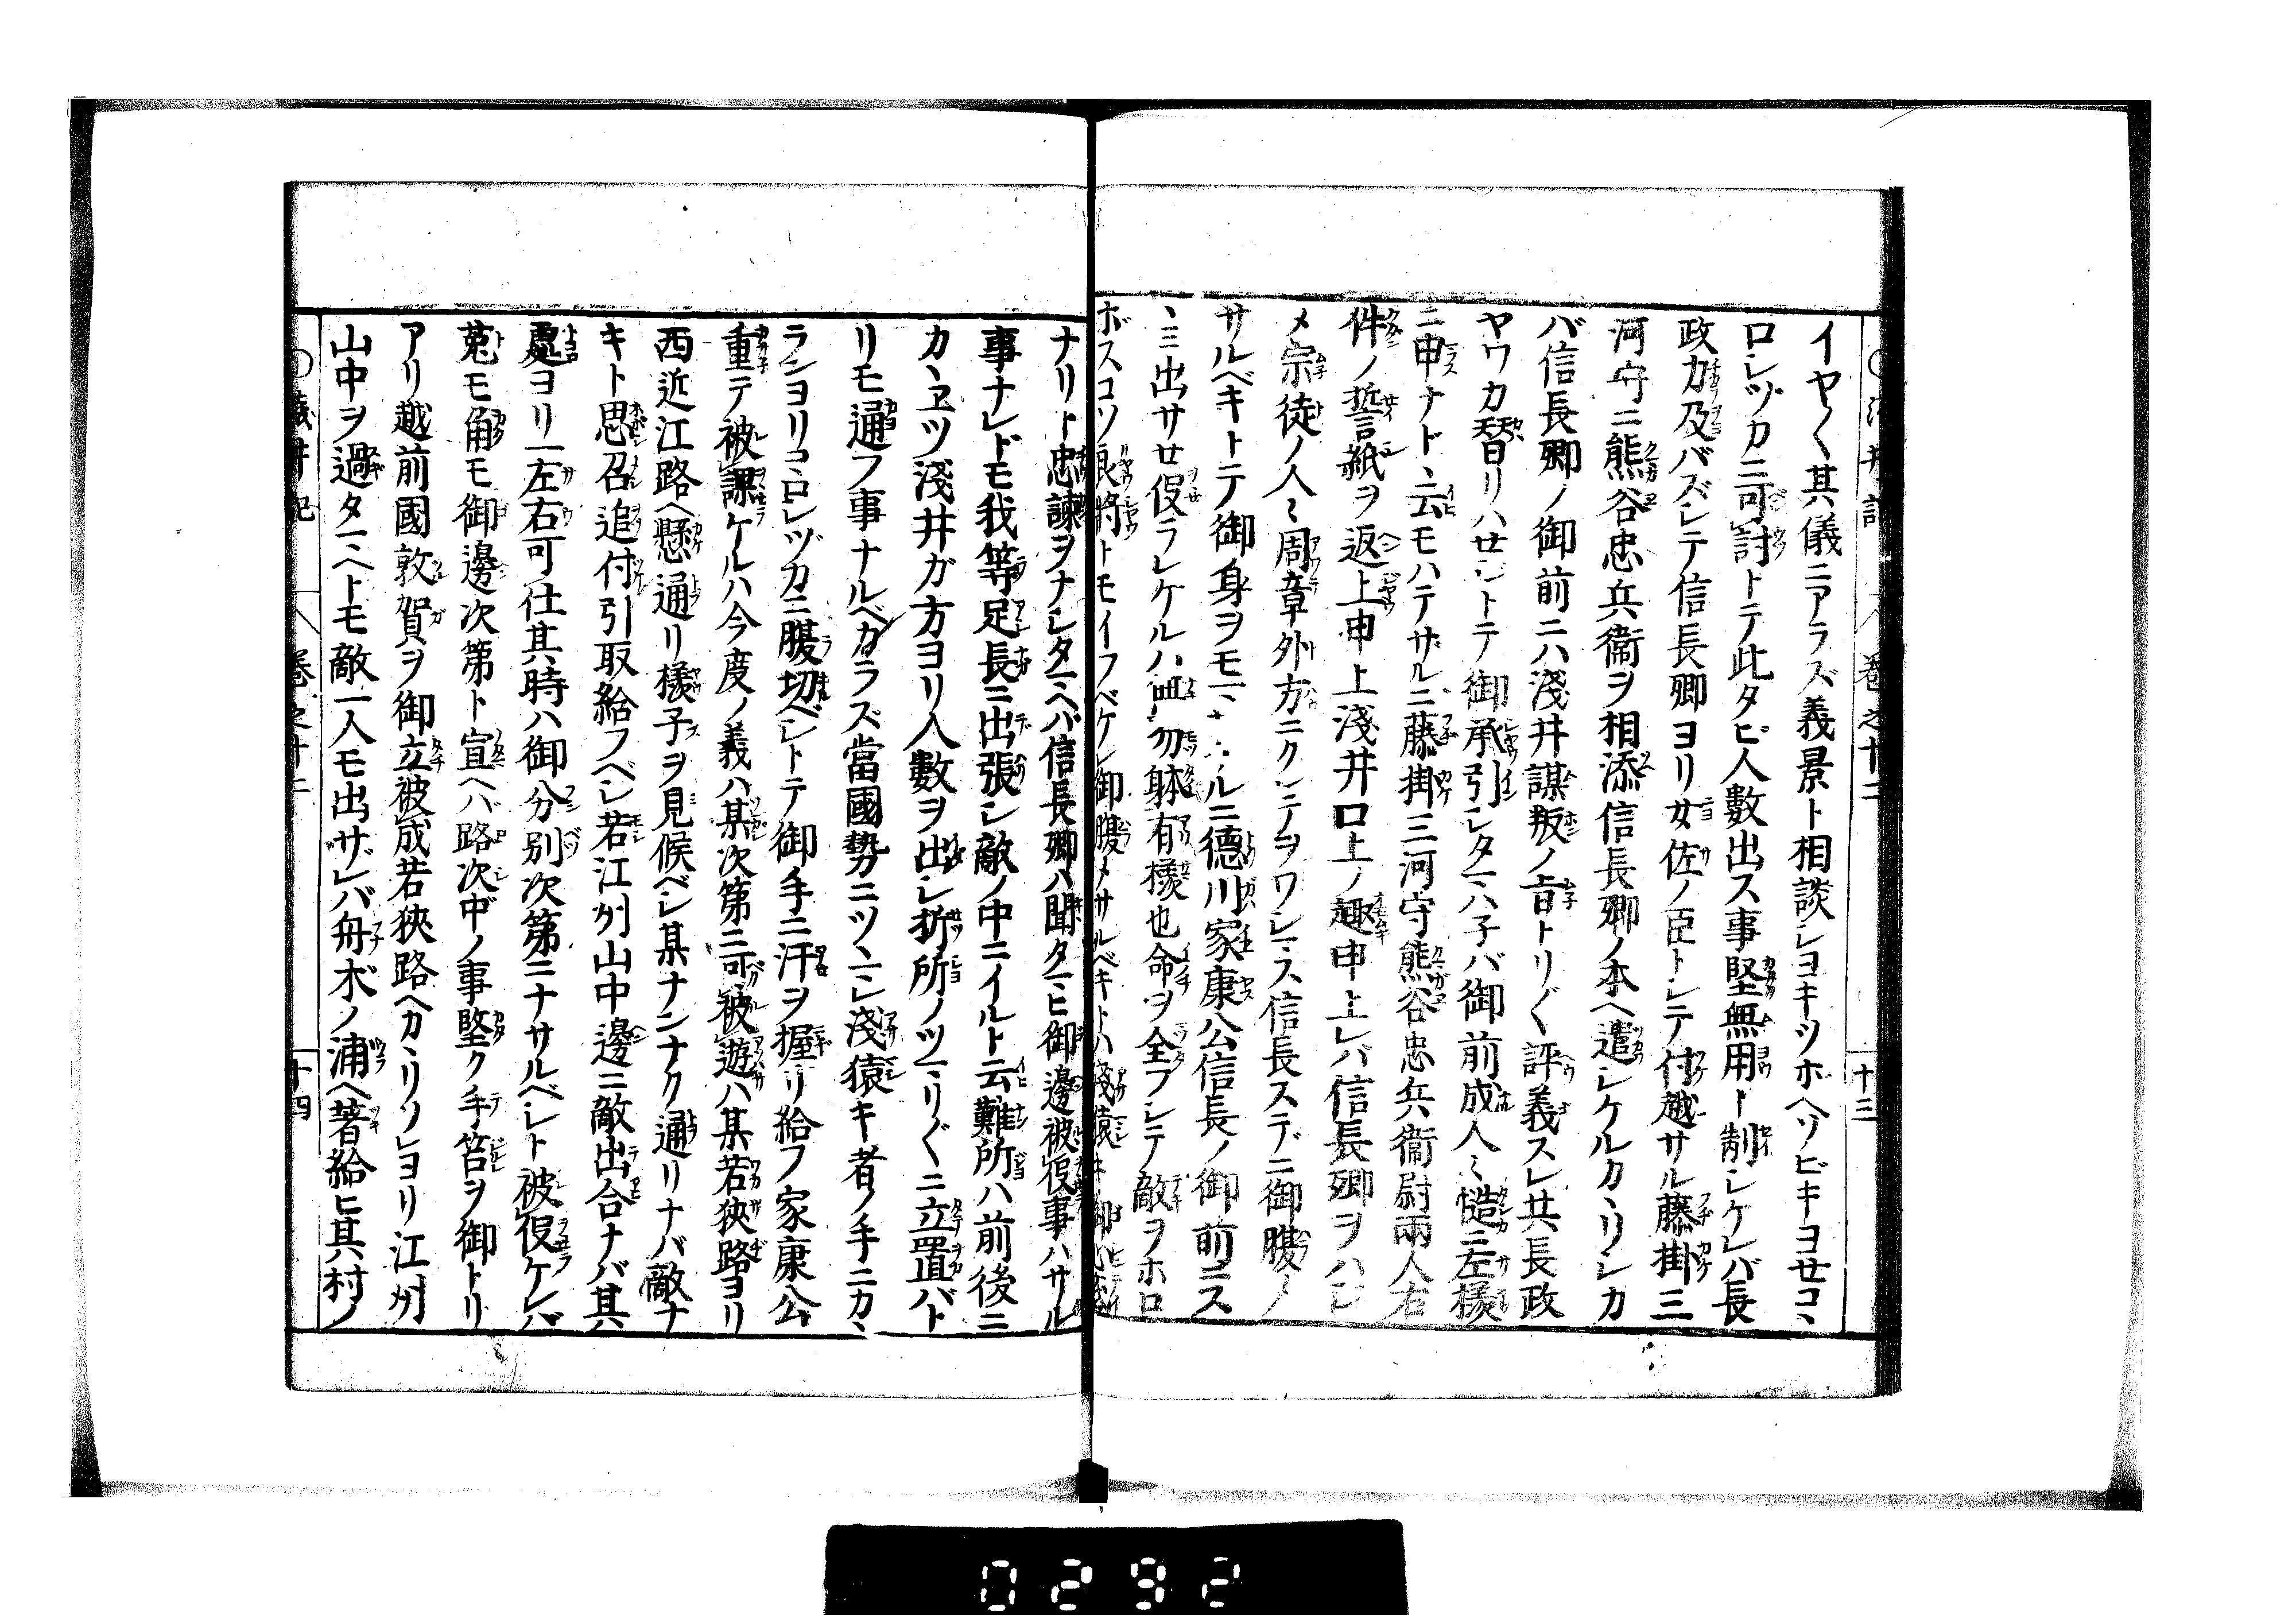 イヤ〱其儀ニアラズ義景ト相談シヨキツボヘソビキヨセコヽ
ロシヅカニ可討トテ此タビ人數出ス事堅無用ト制シケレバ長
政力及バズシテ信長卿ヨリ女佐ノ臣トシテ付越サル藤掛三
河守ニ熊谷忠兵衞ヲ相添信長卿ノ本ヘ遣シケルカヽリシカ
バ信長卿ノ御前ニハ淺井謀叛ノ旨トリ〲評義スレ共長政
ヤワカ替リハセジトテ御承引シタマハ子バ御前成人〻慥ニ左樣
ニ申ナドヽ云モハテザルニ藤掛三河守熊谷忠兵衞尉兩人右
件ノ誓紙ヲ返上申上淺井口上ノ趣申上レバ信長卿ヲハシ
メ宗徒ノ人〻周章外方ニクレテヲワシマス信長ステニ御腹メ
サルベキトテ御身ヲモ ルニ德川家康公信長ノ御前ニス
ヽミ出サセ仮ラレケルハ 勿躰有樣也命ヲ全フシテ敵ヲホロ
ボスコソ良將トモイフベケレ御腹メサルベキトハ淺猿キ御
ナリト忠諫ヲナシタマヘバ信長卿ハ聞タマヒ御邊被仮事ハサル
事ナレドモ我等足長ニ出張シ敵ノ中ニイルト云難所ハ前後ニ
カヽヱツ淺井ガ方ヨリ人數ヲ出シ折所ノツマリ〲ニ立置バト
リモ通フ事ナルベカラズ當國勢ニツヽマレ淺猿キ者ノ手ニカヽ
ランヨリコヽロシヅカニ腹切ベシトテ御手ニ汗ヲ握リ給フ家康公
重テ被謀ケルハ今度ノ義ハ某次第ニ可被遊ハ某若狹路ヨリ
西近江路ヘ懸通リ樣子ヲ見候ベシ某ナンナク通リナバ敵ナ
キト思召追付引取給フベシ若江州山中邊ニ敵出合ナバ其
處ヨリ一左右可仕其時ハ御分別次第ニナサルベシト被仮ケレバ
菟モ角モ御邊次第ト宣ヘバ路次中ノ事堅ク手筈ヲ御トリ
アリ越前國敦賀ヲ御立被成若狹路ヘカヽリソレヨリ江州
山中ヲ過タマヘトモ敵一人モ出サザレバ舟木ノ浦ヘ著給ヒ其村ノ
○淺井記 卷之十二 十四